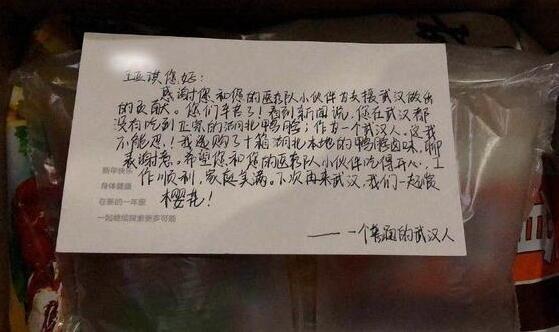 王亚琪您好：
感谢您和您的医疗队小伙伴为支援武汉做出
的贡献。您们辛苦了！看到新闻说，您在武汉都
没有吃到正宗的湖北鸭脖；作为一个武汉人，这我
不能忍！我选购了十箱湖北本地的鸭脖卤味，聊
表谢意。希望您和您的医疗队小伙伴吃得开心，工
作顺利，家庭美满。下次再来武汉，我们一起赏
樱花！
——一个普通的武汉人
新年快乐
身体健康
在新的一年里
一起继续探索更多可能